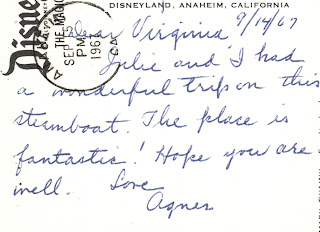 DISNEYLAND, ANAHEIM, CALIFORNIA
Disne
THE MAGI
SEP
PM
196
CA
9/14/67
Dear Virginia,
Julie and I had
a wonderful trip on this
steamboat. The place is
fantastic! Hope you are
well. Love
Agnes